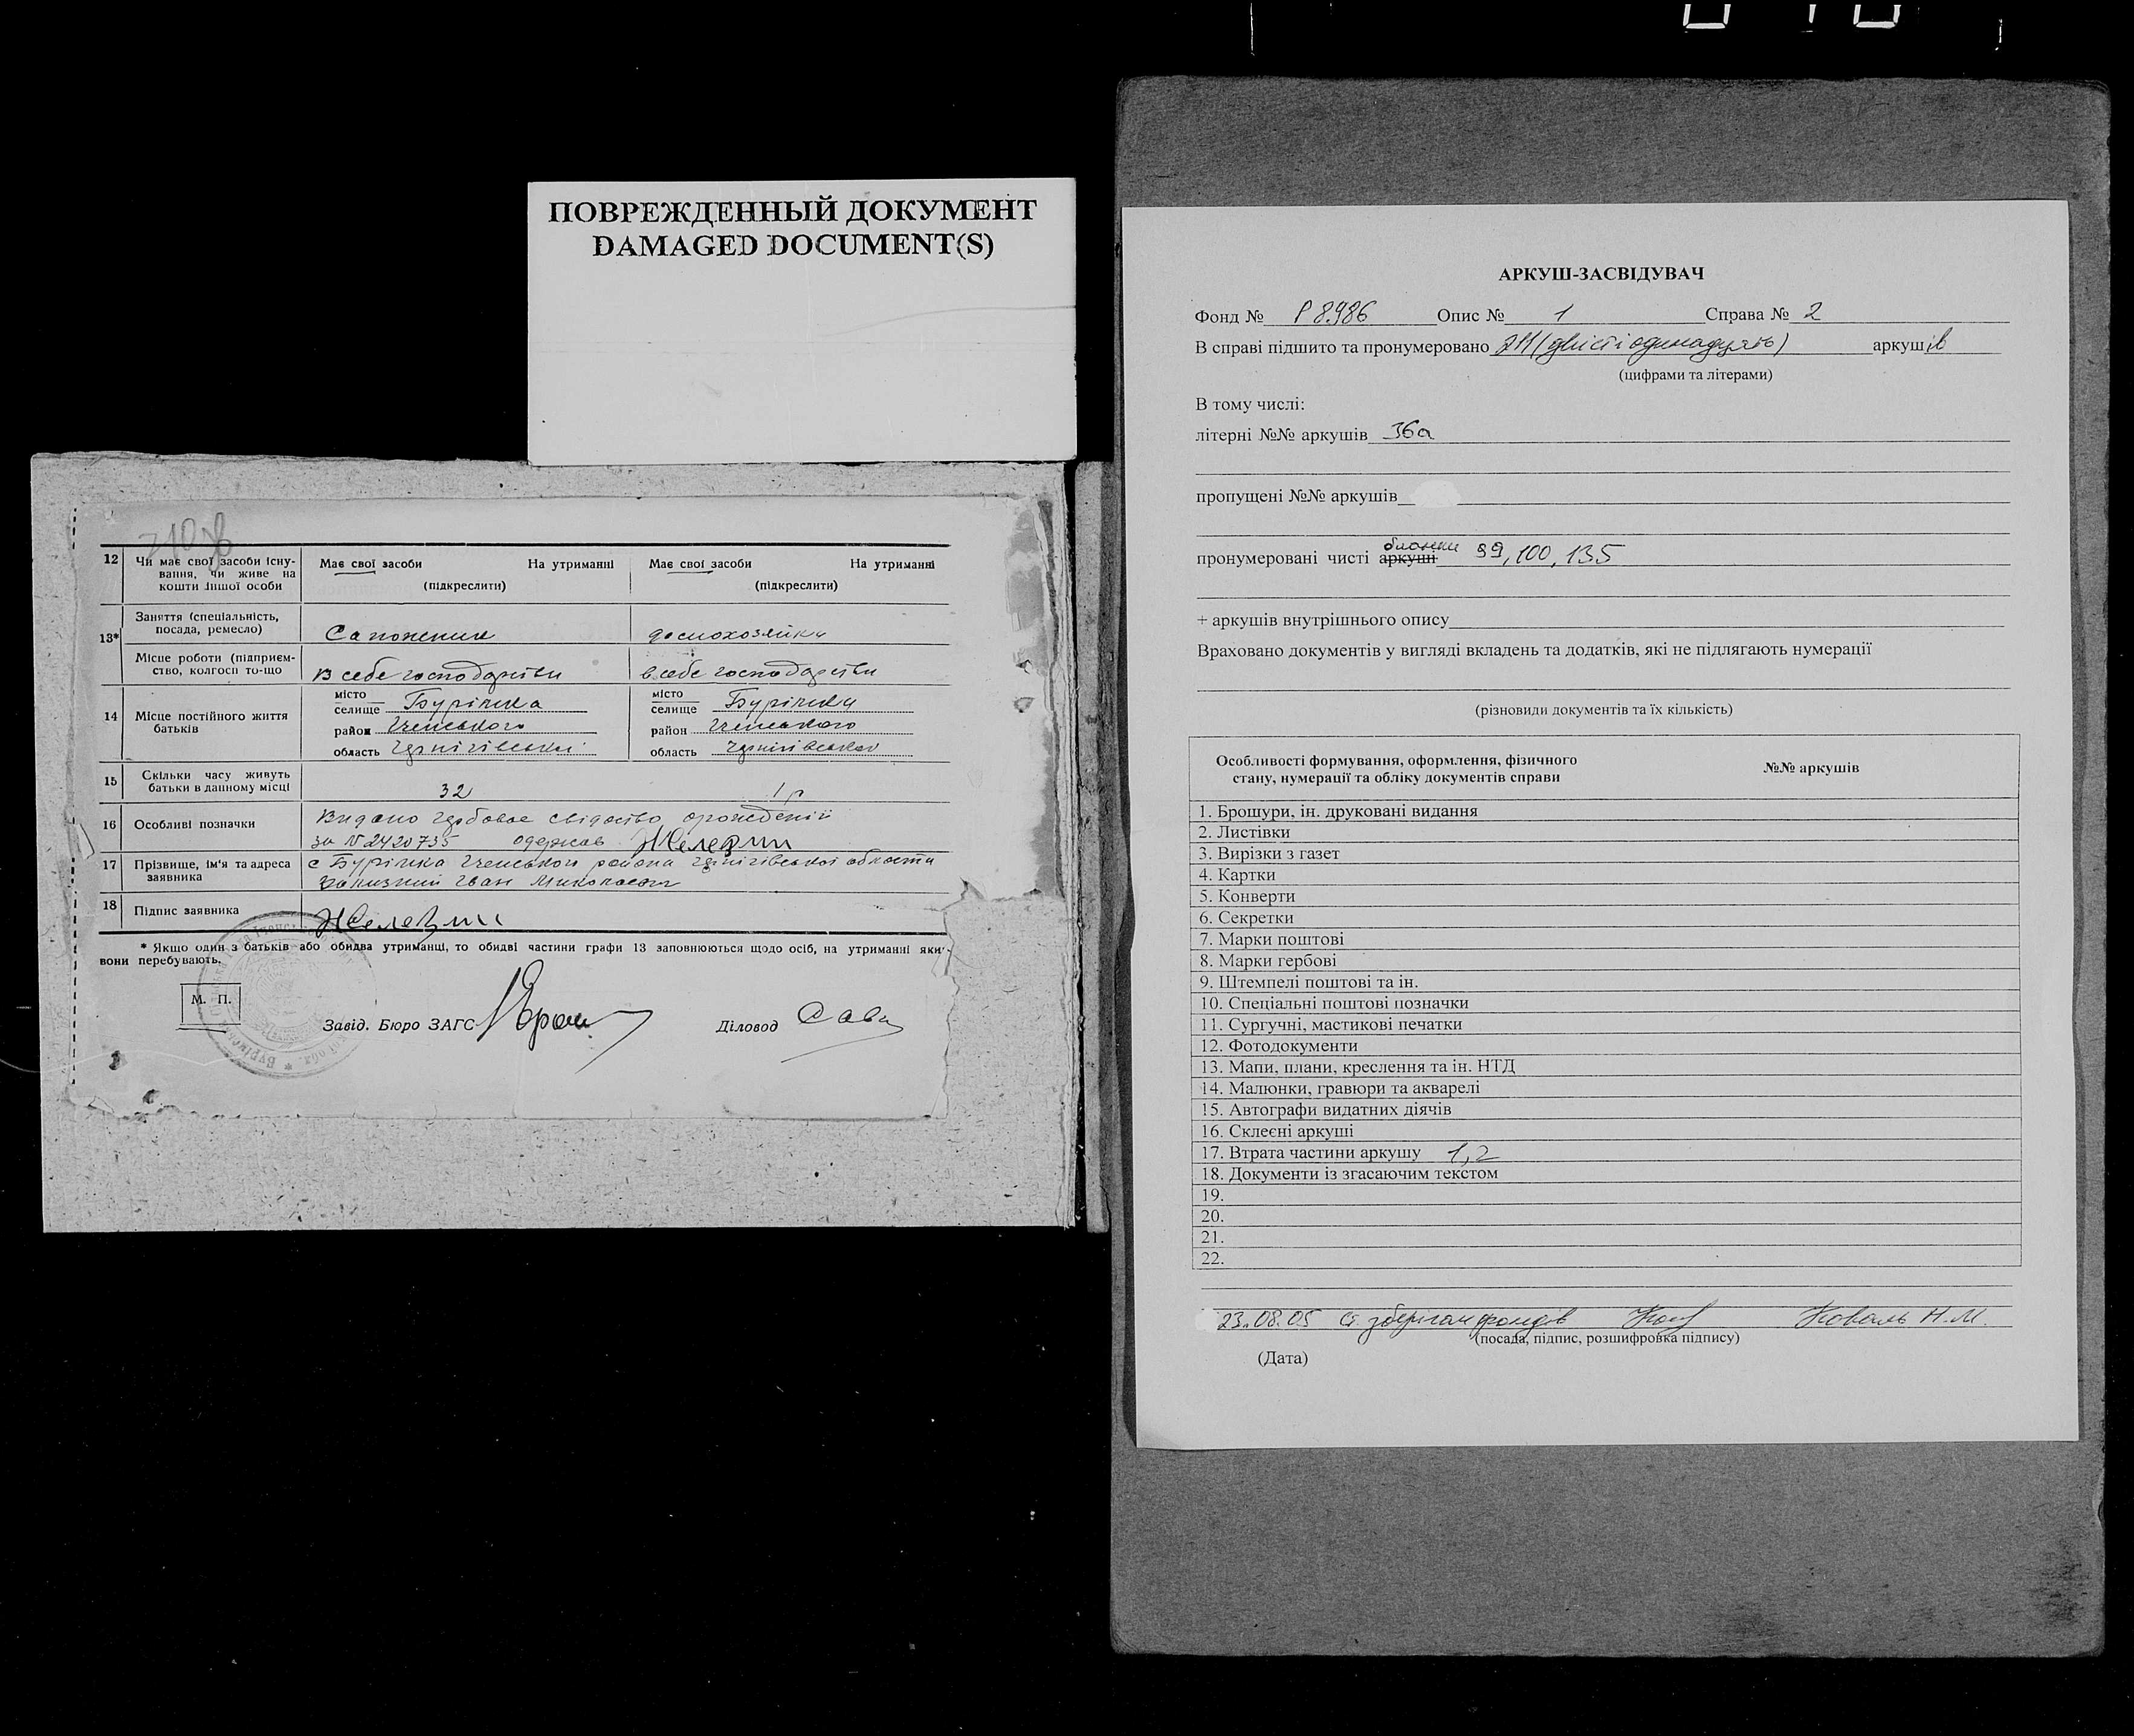 ПОВРЕЖДЕННЫЙ ДОКУМЕНТ
DAMAGED DOCUMENT(S)
12 Чи має свої засоби існування, чи живе на кошти іншої особи
Має свої засоби На утриманні
(підкреслити)
Має свої засоби На утриманні
(підкреслити)
13*
Заняття (спеціальність, посада, ремесло)
домохозяйка
Місце роботи (підприємство, колгосп то-що
в себе господарстви
в себе господарстви
14 Місце постійного життя батьків
місто
селище Бурімка
район Іченського
область Чернігівськой
місто
селище Бурімка
район Іченського
область Чернігівської
15 Скільки часу живуть батьки в данному місці
32 1 р
16 Особливі позначки
Видано гербовое свідоство орождений
за № 2420735 одержав
17 Прізвище, ім'я та адреса заявника
с Бурімка Іченського района Чернігівської области
Іван Миколаевич
18 Підпис заявника
* Якщо один з батьків або обидва утриманці, то обидві частини графи 13 заповнюються щодо осіб, на утриманні яки
вони перебувають.
М. П.
Завід. Бюро ЗАГС
Діловод Сава
АРКУШ-ЗАСВІДУВАЧ
Фонд № Р8986 Опис № 1 Справа № 2
В справі підшито та пронумеровано 211 (двісті одинадцять) аркушів
(цифрами та літерами)
В тому числі:
літерні №№ аркушів 36а
пропущені №№ аркушів
бланки
пронумеровані чисті аркуші 99, 100, 135
+ аркушів внутрішнього опису
Враховано документів у вигляді вкладень та додатків, які не підлягають нумерації
(різновиди документів та їх кількість)
Особливості формування, оформлення, фізичного
стану, нумерації та обліку документів справи
№№ аркушів
1. Брошури, ін. друковані видання
2. Листівки
3. Вирізки з газет
4. Картки
5. Конверти
6. Секретки
7. Марки поштові
8. Марки гербові
9. Штемпелі поштові та ін.
10. Спеціальні поштові позначки
11. Сургучні, мастикові печатки
12. Фотодокументи
13. Мапи, плани, креслення та ін. НТД
14. Малюнки, гравюри та акварелі
15. Автографи видатних діячів
16. Склеєні аркуші
17. Втрата частини аркушу 1,2
18. Документи із згасаючим текстом
19.
20.
21.
22.
23.08.05 Ст. зберігач фондів Коваль Н.М.
(посада, підпис, розшифровка підпису)
(Дата)